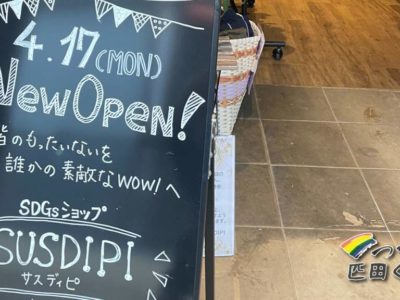 4.17(MON)
New Open!
皆のもったいないを
誰かの素敵なWOW!へ
SDGsショップ
SUSDIPI
サスディピ
DIPI